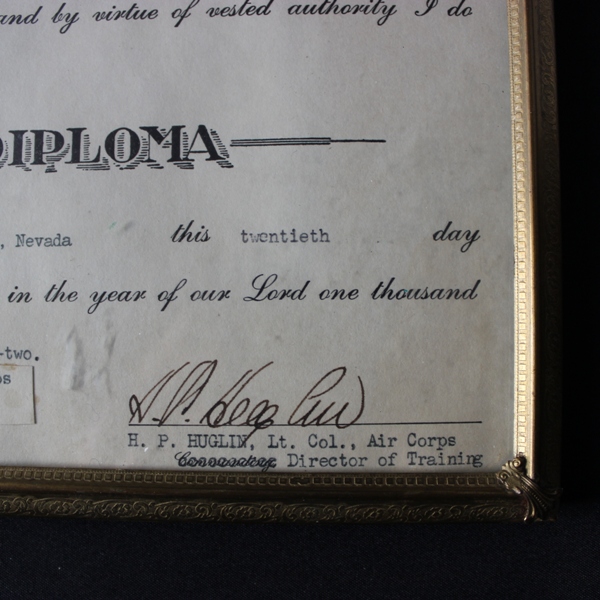 and by virtue of vested authority I do
DIPLOMA
, Nevada this twentieth day
in the year of our Lord one thousand
-two.
H. P. Huglin
H. P. HUGLIN, Lt. Col., Air Corps
Director of Training